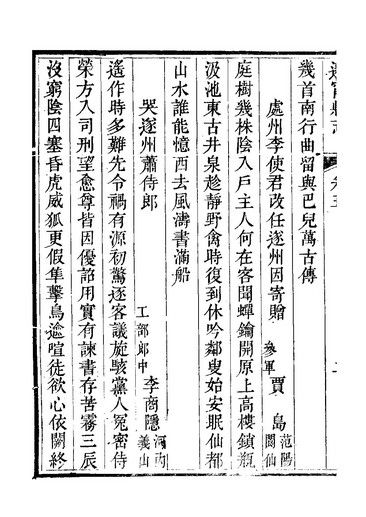 幾首南行曲留與巴兒萬古傳
處州李使君改任遂州因寄贈 參軍 賈島 范陽閬仙
庭樹幾株陰入戶主人何在客聞蟬鑰開原上高樓鎖瓶
汲池東古井泉趁靜野禽時復到休吟鄰叟始安眠仙都
山水誰能憶西去風濤書滿船
哭遂州蕭侍郎 工部郎中 李商隱 河內義山
遙作時多難先令禍有源初驚逐客議旋駭黨人冤密侍
榮方入司刑望愈尊皆因優詔用實有諫書存苦霧三辰
沒窮陰四塞昏虎威狐更假隼擊鳥逾喧徒欲心依闕終